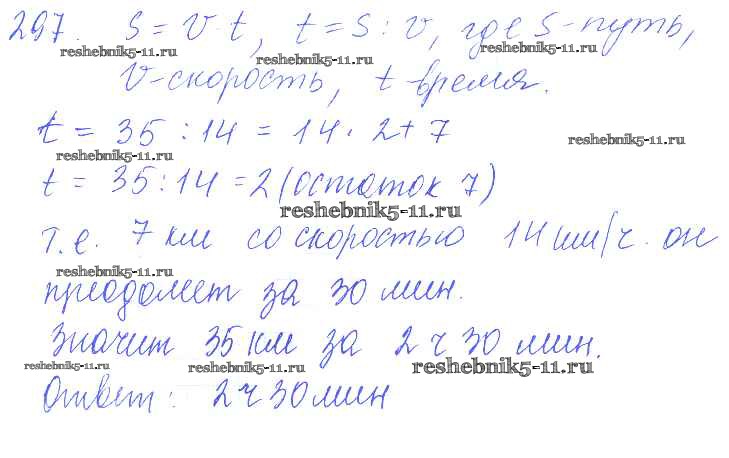 297. S = V · t, t = S : v, где S - путь,
reshebnik5-11.ru reshebnik5-11.ru reshebnik5-11.ru
V - скорость, t время.
t = 35 : 14 = 14 · 2 + 7
reshebnik5-11.ru reshebnik5-11.ru
t = 35 : 14 = 2 (остаток 7)
reshebnik5-11.ru
т.е. 7 км со скоростью 14 км/ч. он
reshebnik5-11.ru
преодолеет за 30 мин.
Значит 35 км за 2 ч 30 мин.
reshebnik5-11.ru reshebnik5-11.ru reshebnik5-11.ru
Ответ: 2 ч 30 мин